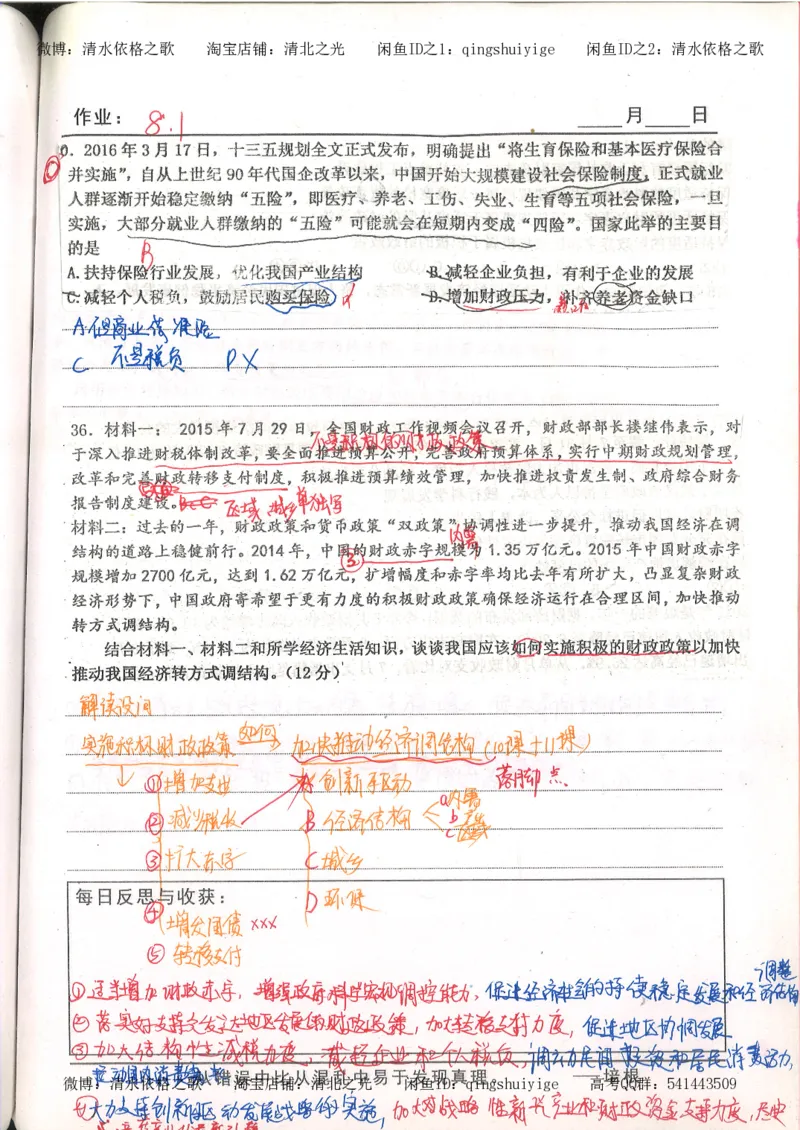 微博：清水依格之歌 淘宝店铺：清北之光 闲鱼ID之1：qingshuiyige 闲鱼ID之2：清水依格之歌
作业： 8.1 月 日
0. 2016年3月17日，十三五规划全文正式发布，明确提出“将生育保险和基本医疗保险合
并实施”，自从上世纪90年代国企改革以来，中国开始大规模建设社会保险制度，正式就业
人群逐渐开始稳定缴纳“五险”，即医疗、养老、工伤、失业、生育等五项社会保险，一旦
实施，大部分就业人群缴纳的“五险”可能就会在短期内变成“四险”。国家此举的主要目
的是 B
A.扶持保险行业发展，优化我国产业结构 B.减轻企业负担，有利于企业的发展
C.减轻个人税负，鼓励居民购买保险 D.增加财政压力，补齐养老资金缺口
A.但商业
C 不是税负 D X
36. 材料一： 2015年7月29日，全国财政工作视频会议召开，财政部部长楼继伟表示，对
不是积极的财政政策
于深入推进财税体制改革，要全面推进预算公开，完善政府预算体系，实行中期财政规划管理，
改革和完善财政转移支付制度，积极推进预算绩效管理，加快推进权责发生制、政府综合财务
报告制度建设。 区域 城乡单独写
材料二：过去的一年，财政政策和货币政策“双政策”协调性进一步提升，推动我国经济在调
内需
结构的道路上稳健前行。2014年，中国的财政赤字规模为1.35万亿元。2015年中国财政赤字
③
规模增加2700亿元，达到1.62万亿元，扩增幅度和赤字率均比去年有所扩大，凸显复杂财政
经济形势下，中国政府寄希望于更有力度的积极财政政策确保经济运行在合理区间，加快推动
转方式调结构。
结合材料一、材料二和所学经济生活知识，谈谈我国应该如何实施积极的财政政策以加快
推动我国经济转方式调结构。（12分）
解读设问
实施积极财政政策 如何 加快推动经济调结构（10课+11课）
①增加支出 A 创新驱动 落脚点
②减少税收 B 经济结构 a内需 b c区域
③扩大赤字 C 城乡
每日反思与收获： D 环保
④增发国债 xxx
⑤ 转移支付
①适当增加财政赤字，增强政府科学宏观调控能力，促进经济的持续稳定发展和经济结构
调整
②落实好支持欠发达地区发展的财政政策，加大转移支付力度，促进地区协调发展
③加大结构性减税力度，减轻企业和个人税负，调动民间投资和居民消费活力，
微博：清水依格之歌 淘宝店铺：清北之光 闲鱼ID之1：qingshuiyige 高考QQ群：541443509
从错误中比从混乱中易于发现真理 ——培根
④大力支持创新驱动发展战略的实施，加大对战略性新兴产业和财政资金支持力度，